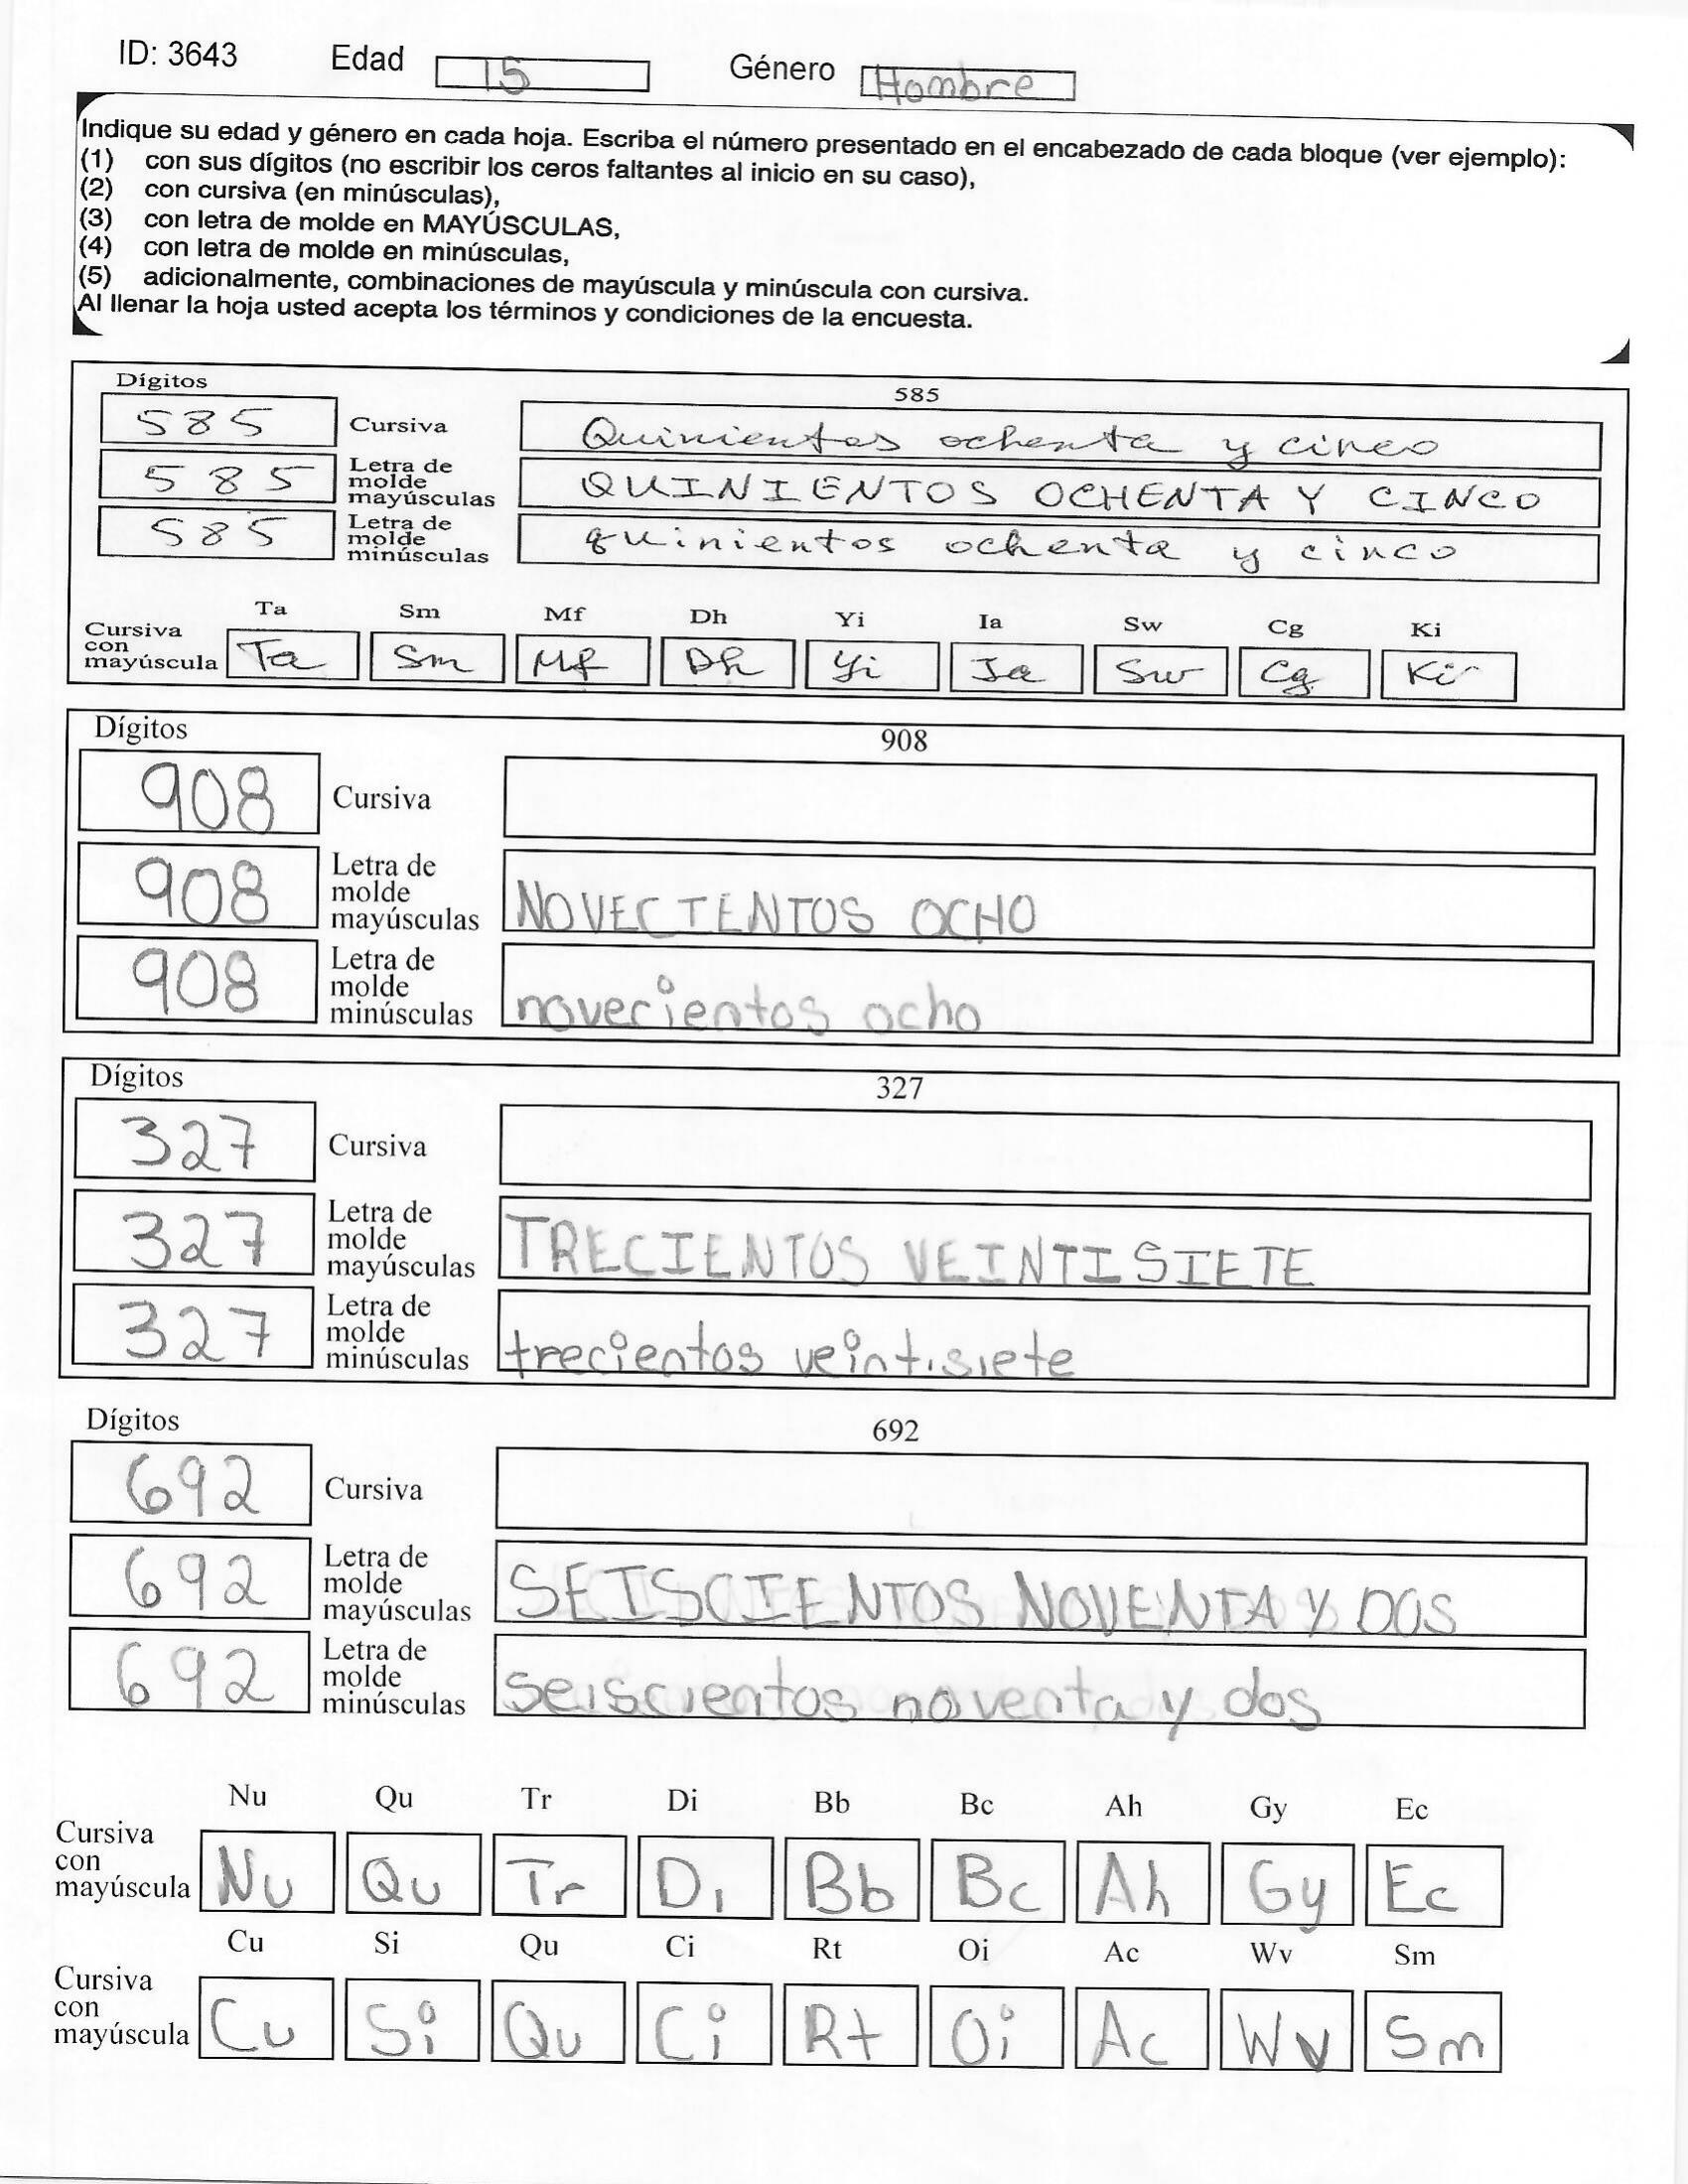 ID: 3643 Edad 15 Género Hombre
Indique su edad y género en cada hoja. Escriba el número presentado en el encabezado de cada bloque (ver ejemplo):
(1) con sus dígitos (no escribir los ceros faltantes al inicio en su caso),
(2) con cursiva (en minúsculas),
(3) con letra de molde en MAYÚSCULAS,
(4) con letra de molde en minúsculas,
(5) adicionalmente, combinaciones de mayúscula y minúscula con cursiva.
Al llenar la hoja usted acepta los términos y condiciones de la encuesta.
Dígitos 585
585 Cursiva Quinientos ochenta y cinco
585 Letra de molde mayúsculas QUINIENTOS OCHENTA Y CINCO
585 Letra de molde minúsculas quinientos ochenta y cinco
Ta Sm Mf Dh Yi Ia Sw Cg Ki
Cursiva con mayúscula Ta Sm Mf Dh Yi Ia Sw Cg Ki
Dígitos 908
908 Cursiva
908 Letra de molde mayúsculas NOVECIENTOS OCHO
908 Letra de molde minúsculas novecientos ocho
Dígitos 327
327 Cursiva
327 Letra de molde mayúsculas TRECIENTOS VEINTISIETE
327 Letra de molde minúsculas trecientos veintisiete
Dígitos 692
692 Cursiva
692 Letra de molde mayúsculas SEISCIENTOS NOVENTA Y DOS
692 Letra de molde minúsculas seiscientos noventa y dos
Nu Qu Tr Di Bb Bc Ah Gy Ec
Cursiva con mayúscula Nu Qu Tr Di Bb Bc Ah Gy Ec
Cu Si Qu Ci Rt Oi Ac Wv Sm
Cursiva con mayúscula Cu Si Qu Ci Rt Oi Ac Wv Sm